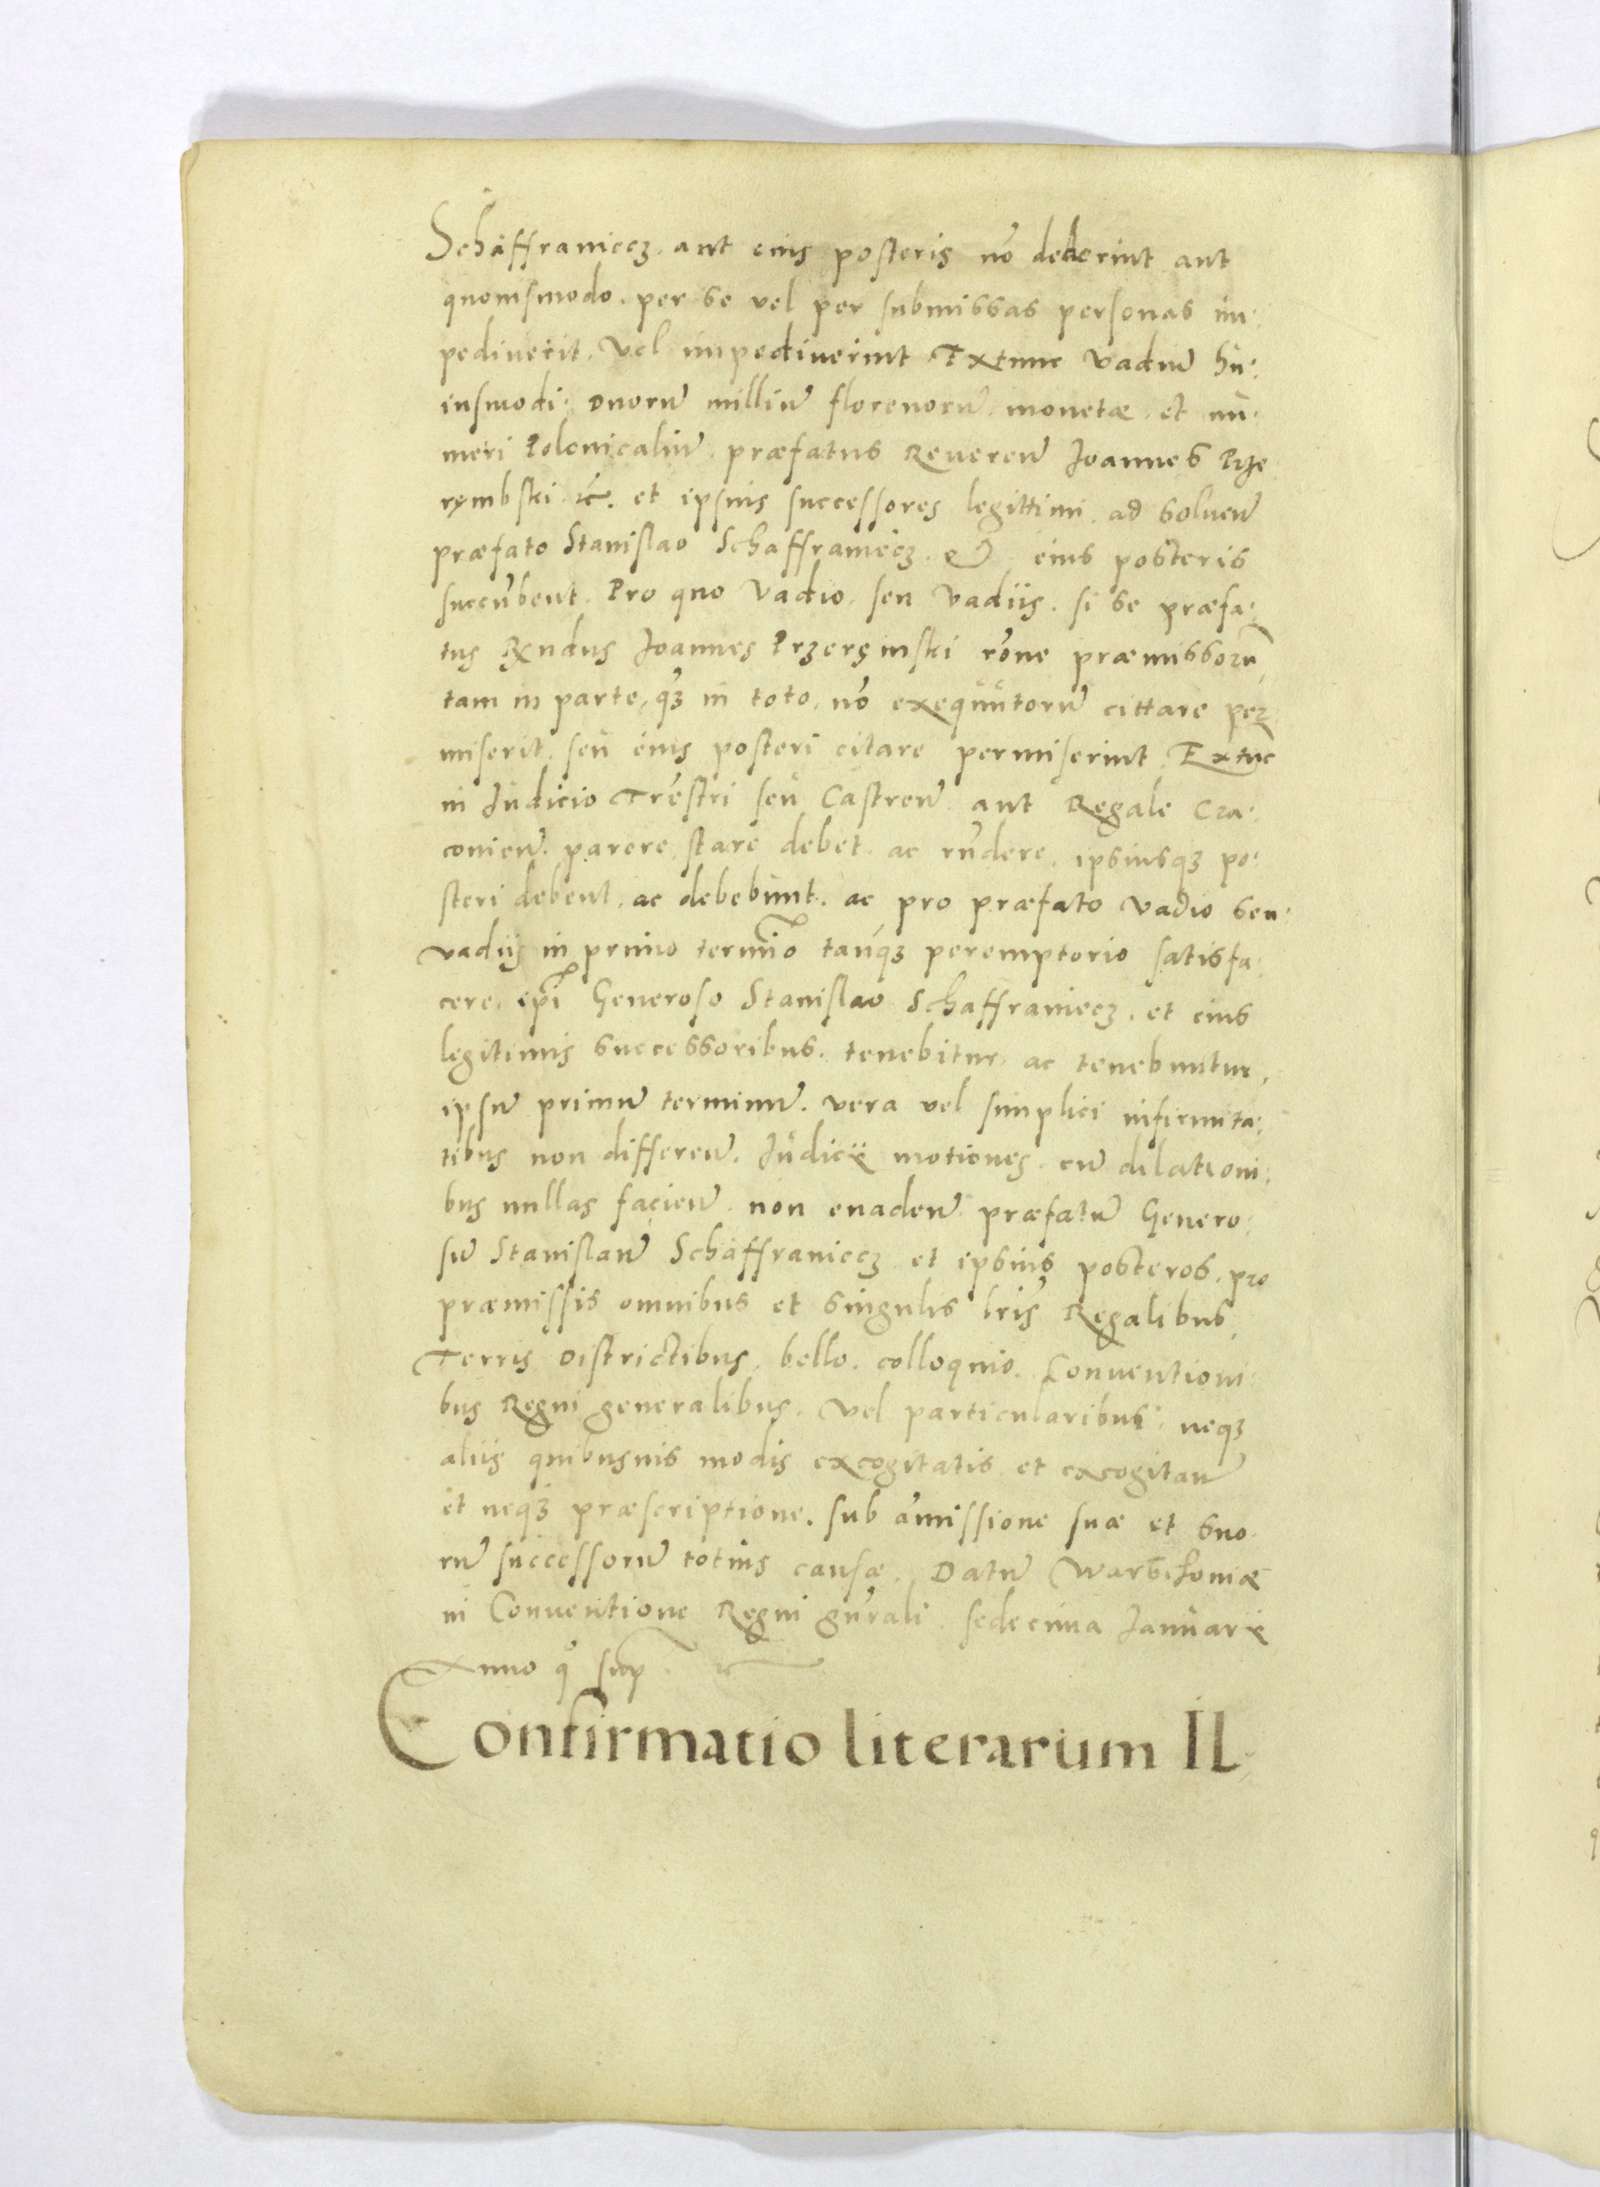 Schäffraniecz. aut eius posteris nō dederint aut
quouismodo. per se vel per submissas personas im:
pediuerit. Vel impediuerint Extunc Vadiū hu:
iusmodi. Duorū milliū florenorū. monetæ et nu:
meri Polonicaliū. præfatus Reuerenꝰ Joannes Prze
rembski ꝛc̄. et ipsius successores legittimi. ad soluenꝰ
præfato Stanislao Schaffraniecz. eius posteris
succūbent. Pro quo Vadio. seu Vadiis. si se præfa:
tus Rēndus Joannes Przeręmski rōne præmissorū
tam in parte, qꝫ in toto. nō exequutorū cittare per
miserit. seu eius posteri citare permiserint. Extūc
in Judicio Trestri seu Castrenꝰ aut Regale Cra:
conienꝰ. parere. stare debet. ac rūdere. ipsiusqꝫ po:
steri debent. ac debebunt. ac pro præfato Vadio seu
vadiis in primo termīo tanqꝫ peremptorio satisfa:
cere. ipī Generoso Stanislao Schaffraniecz. et eius
legitimis successoribus. tenebitur. ac tenebuntur,
ipsū primū terminū. vera vel simplici infirmita:
tibus non differenꝰ. Judicii motiones. cū dilationi:
bus nullas facienꝰ. non euadenꝰ præfatū Genero:
sū Stanislaū Schäffraniecz et ipsius posteros. pro
præmissis omnibus et singulis lris Regalibus,
Terris Districtibus, bello. colloquio. Conuentioni:
bus Regni generalibus. Vel particularibus. neqꝫ
aliis quibusuis modis excogitatis et excogitanꝰ
et neqꝫ præscriptione. sub āmissione suæ et suo
rū successorū totius causæ. Datū Warschouiæ
in Conuentione Regni gnrali. sedecima Januarii
Anno qº sup̄. ꝛc
Confirmatio literarum IL: